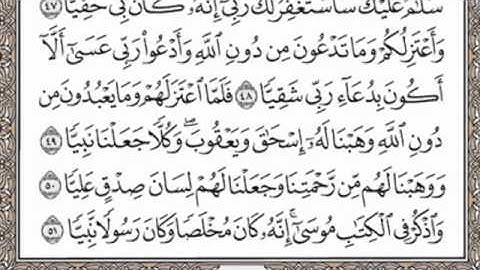 سَلَٰمٌ عَلَيْكَ سَأَسْتَغْفِرُ لَكَ رَبِّىٓ إِنَّهُۥ كَانَ بِى حَفِيًّا ٤٧
وَأَعْتَزِلُكُمْ وَمَا تَدْعُونَ مِن دُونِ ٱللَّهِ وَأَدْعُوا۟ رَبِّى عَسَىٰٓ أَلَّآ
أَكُونَ بِدُعَآءِ رَبِّى شَقِيًّا ٤٨ فَلَمَّا ٱعْتَزَلَهُمْ وَمَا يَعْبُدُونَ مِن
دُونِ ٱللَّهِ وَهَبْنَا لَهُۥٓ إِسْحَٰقَ وَيَعْقُوبَ ۖ وَكُلًّا جَعَلْنَا نَبِيًّا ٤٩
وَوَهَبْنَا لَهُم مِّن رَّحْمَتِنَا وَجَعَلْنَا لَهُمْ لِسَانَ صِدْقٍ عَلِيًّا ٥٠
وَٱذْكُرْ فِى ٱلْكِتَٰبِ مُوسَىٰٓ ۚ إِنَّهُۥ كَانَ مُخْلَصًا وَكَانَ رَسُولًا نَّبِيًّا ٥١